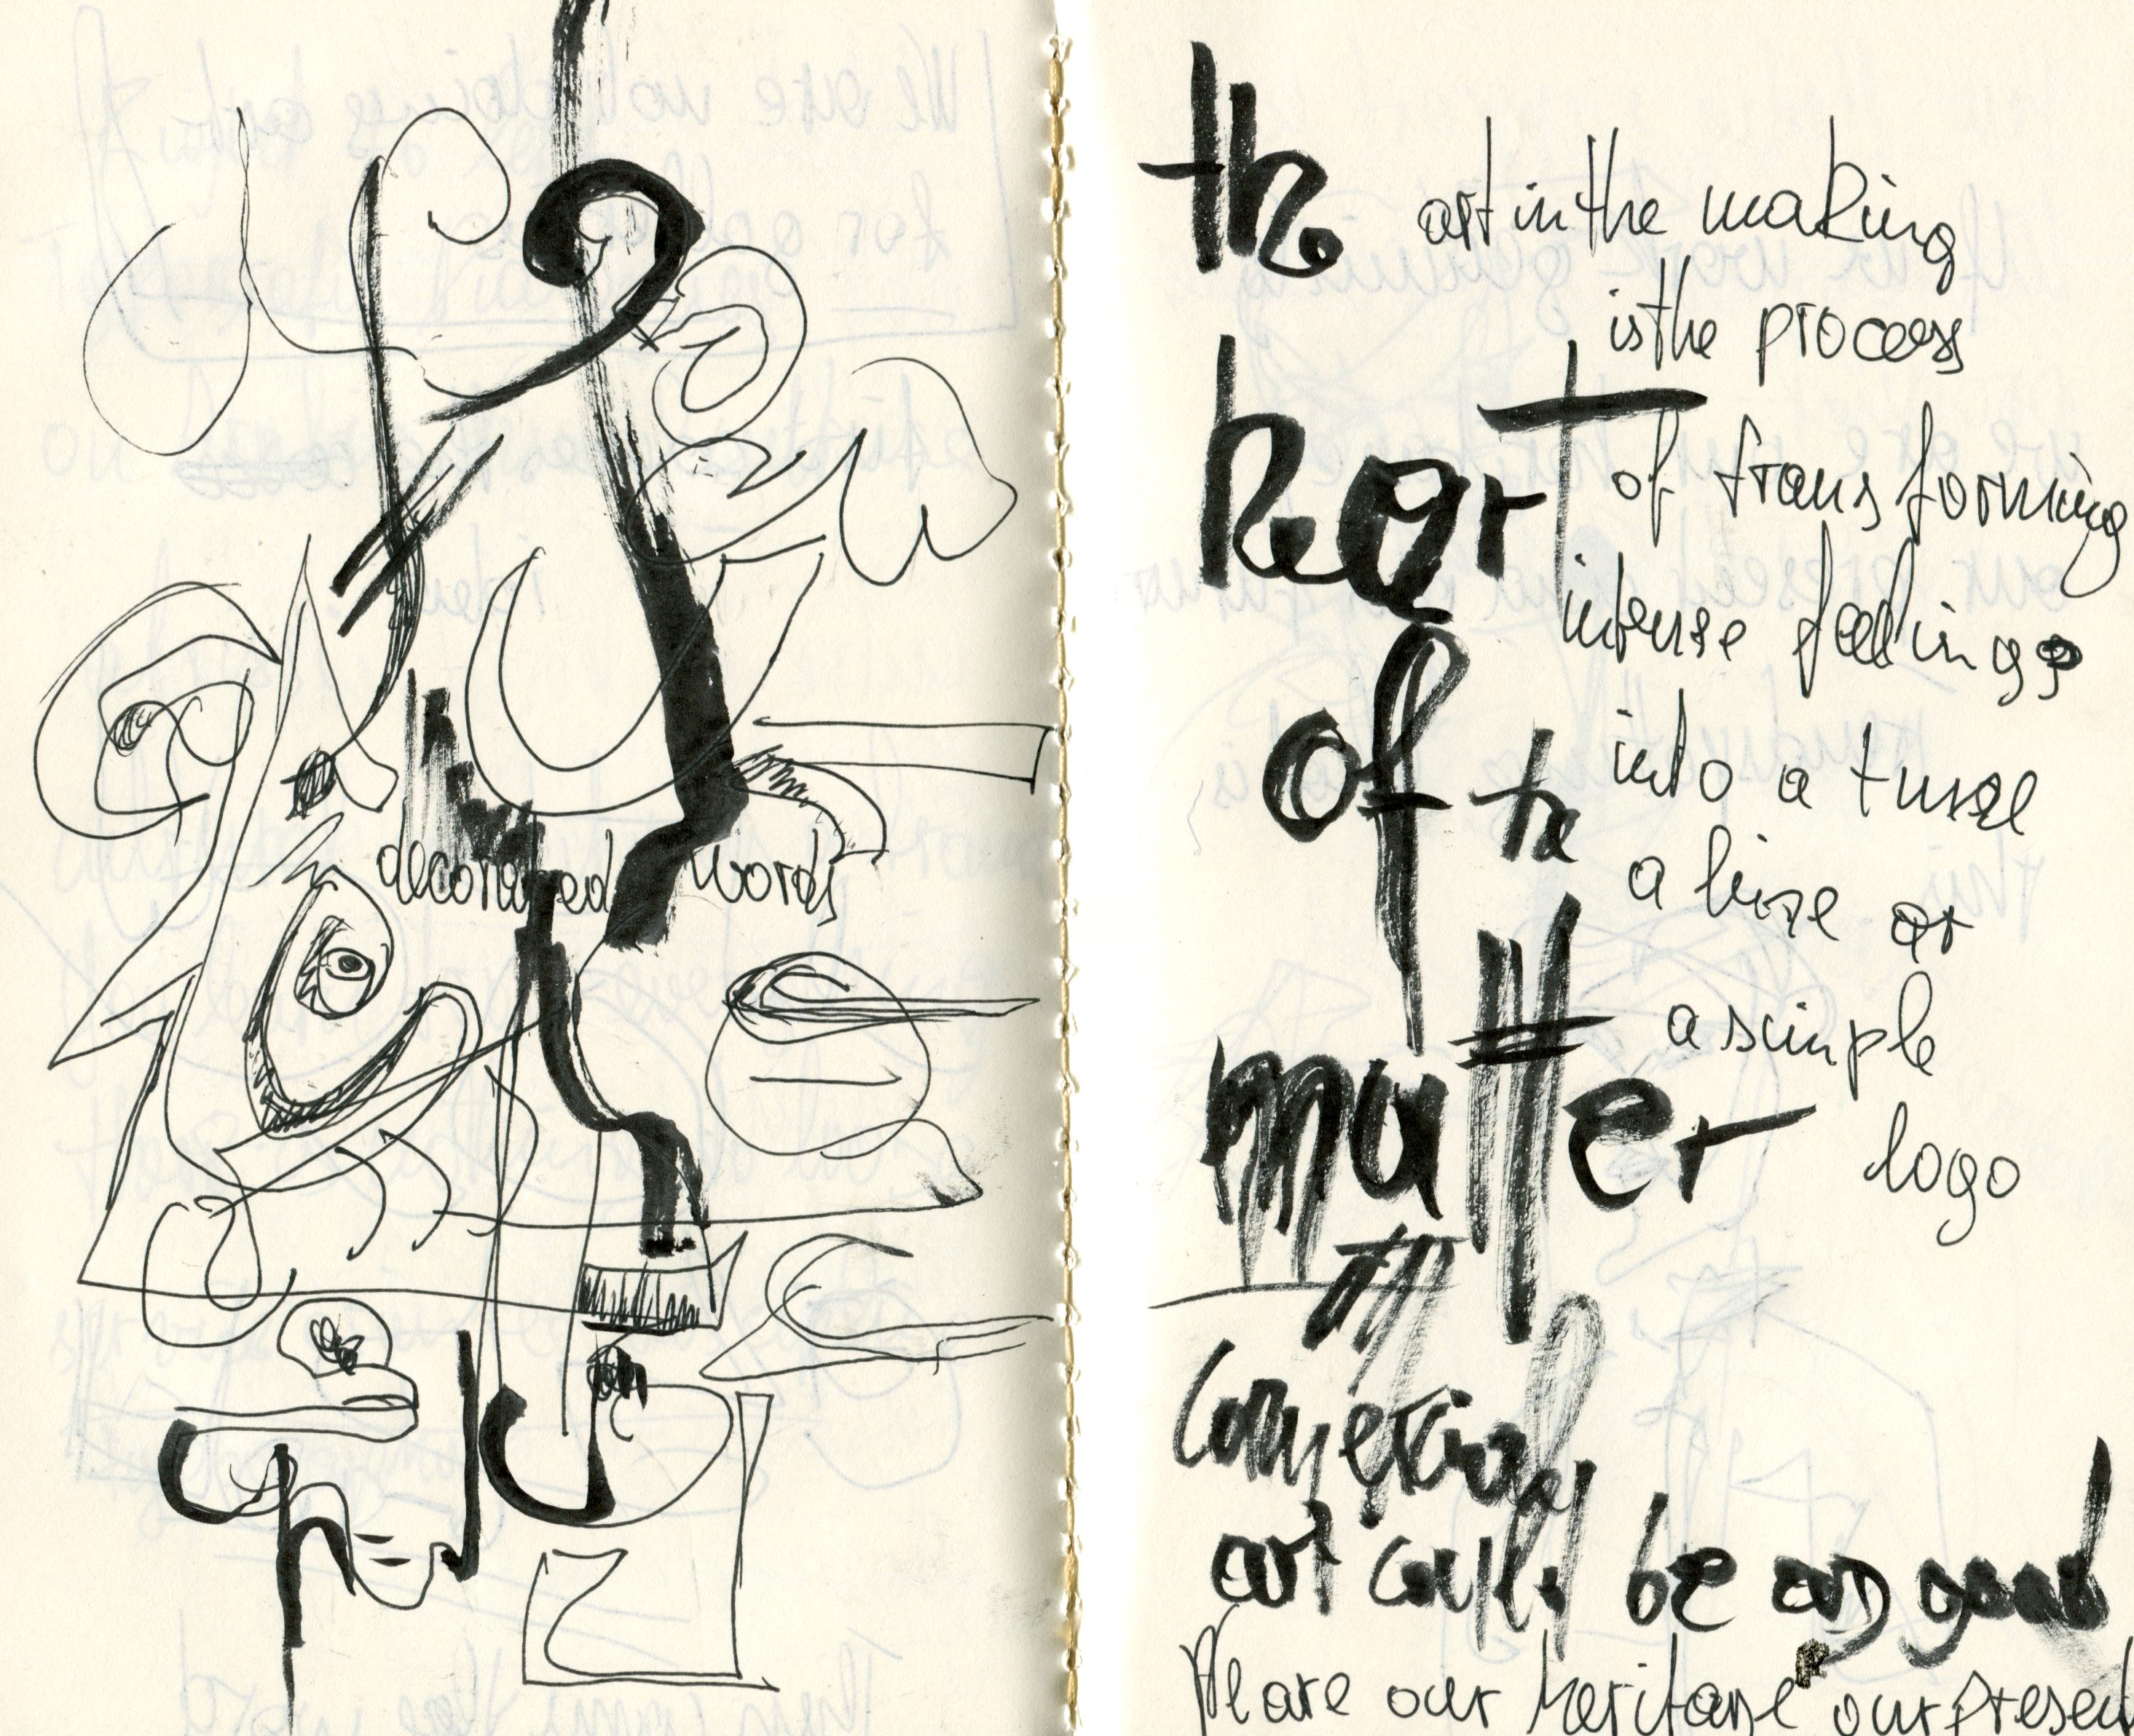 decorated words
the
heart
of the
matter
art in the making
is the process
of transforming
intense feelings
into a tune
a line or
a simple
logo
Comercial
art could be as good
We are our heritage our present